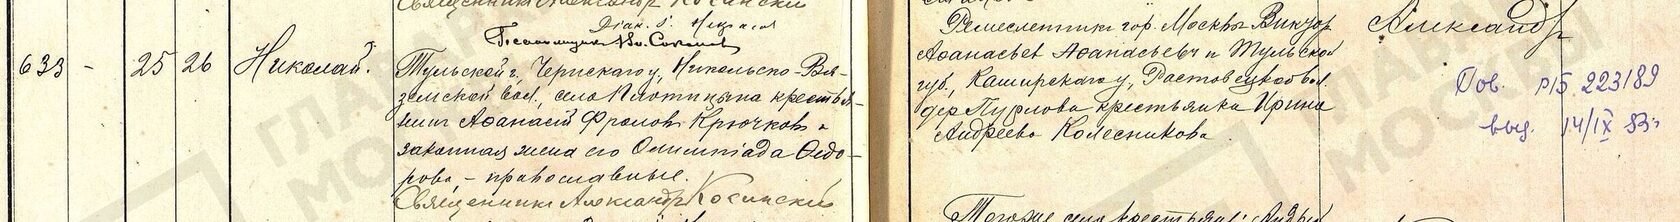 Священник Александр Косинский
Диак.
Псаломщик Вл. Соколов
633 - 25 26 Николай.
Тульской г., Чернскаго у., Никольско-Вя-
земской вол., села Плотицына крестья-
нин Афанасій Фролов Крючков и
законная жена его Олимпіада Ѳедо-
рова, - православные.
Священник Александр Косинский
Ремесленник гор. Москвы Виктор
Афанасьев Афанасьевъ и Тульской
губ., Каширскаго у., Растовецкой вол.
дер. крестьянка Ирина
Андреева Колесникова.
Тогоже села крестьянин Андрей
Александр
Пов. 223189
выд. 14/IX 83г